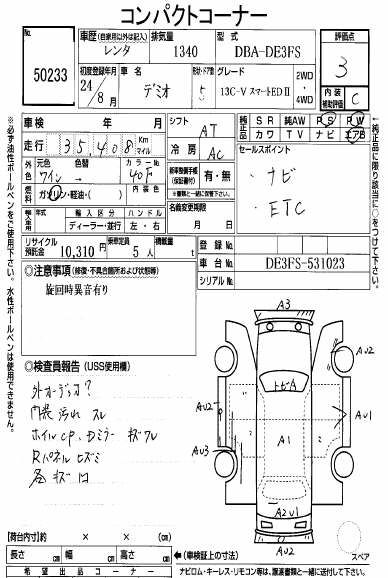 コンパクトコーナー
50233
車歴 (自家用以外は記入) レンタ
排気量 1340
型式 DBA-DE3FS
評価点 3
初度登録年月 24/8 月
車名 デミオ
形状・ドア数 5
グレード 13C-V スマートEDⅡ
2WD・4WD
内装補助評価 C
車検 年 月
走行 35,408 Km マイル
シフト AT
純正品 PS 純AW PS PW
カワ TV ナビ エアB
外色 元色 ワイン → 色替
カラーNo.
内装色
冷房 AC
セールスポイント
・ナビ
・ETC
燃料 ガソリン・軽油・( )
新車整備手帳 (保証書付) 有・無
輸入車用 年式 輸入区分 ディーラー・並行
ハンドル 左・右
名義変更期限 月 日
リサイクル預託金 10,310 円
乗車定員 5 人
積載量 t
登録No.
車台No. DE3FS-531023
シリアルNo.
◎注意事項 (修復・不具合箇所および状態等)
旋回時異音有り
◎検査員報告 (USS使用欄)
外オーディオ?
内装汚れ スレ
ホイルCP、Dミラー キズ
Rパネル ヒズミ
各キズ凹
A3
AU2
トビA
AU2
AU1
A1
AU3
A2U1
AU2
スペア
【荷台内寸】 × × (cm)
長さ cm 幅 cm 高さ cm
◀(車検証上の寸法)
希望出品コーナー
ナビロム・キーレス・リモコン等は、書類と一緒に送付して下さい。
※必ず油性ボールペンをご使用下さい。水性ボールペンは使用できません。
純正品に限り該当に○をつけて下さい。